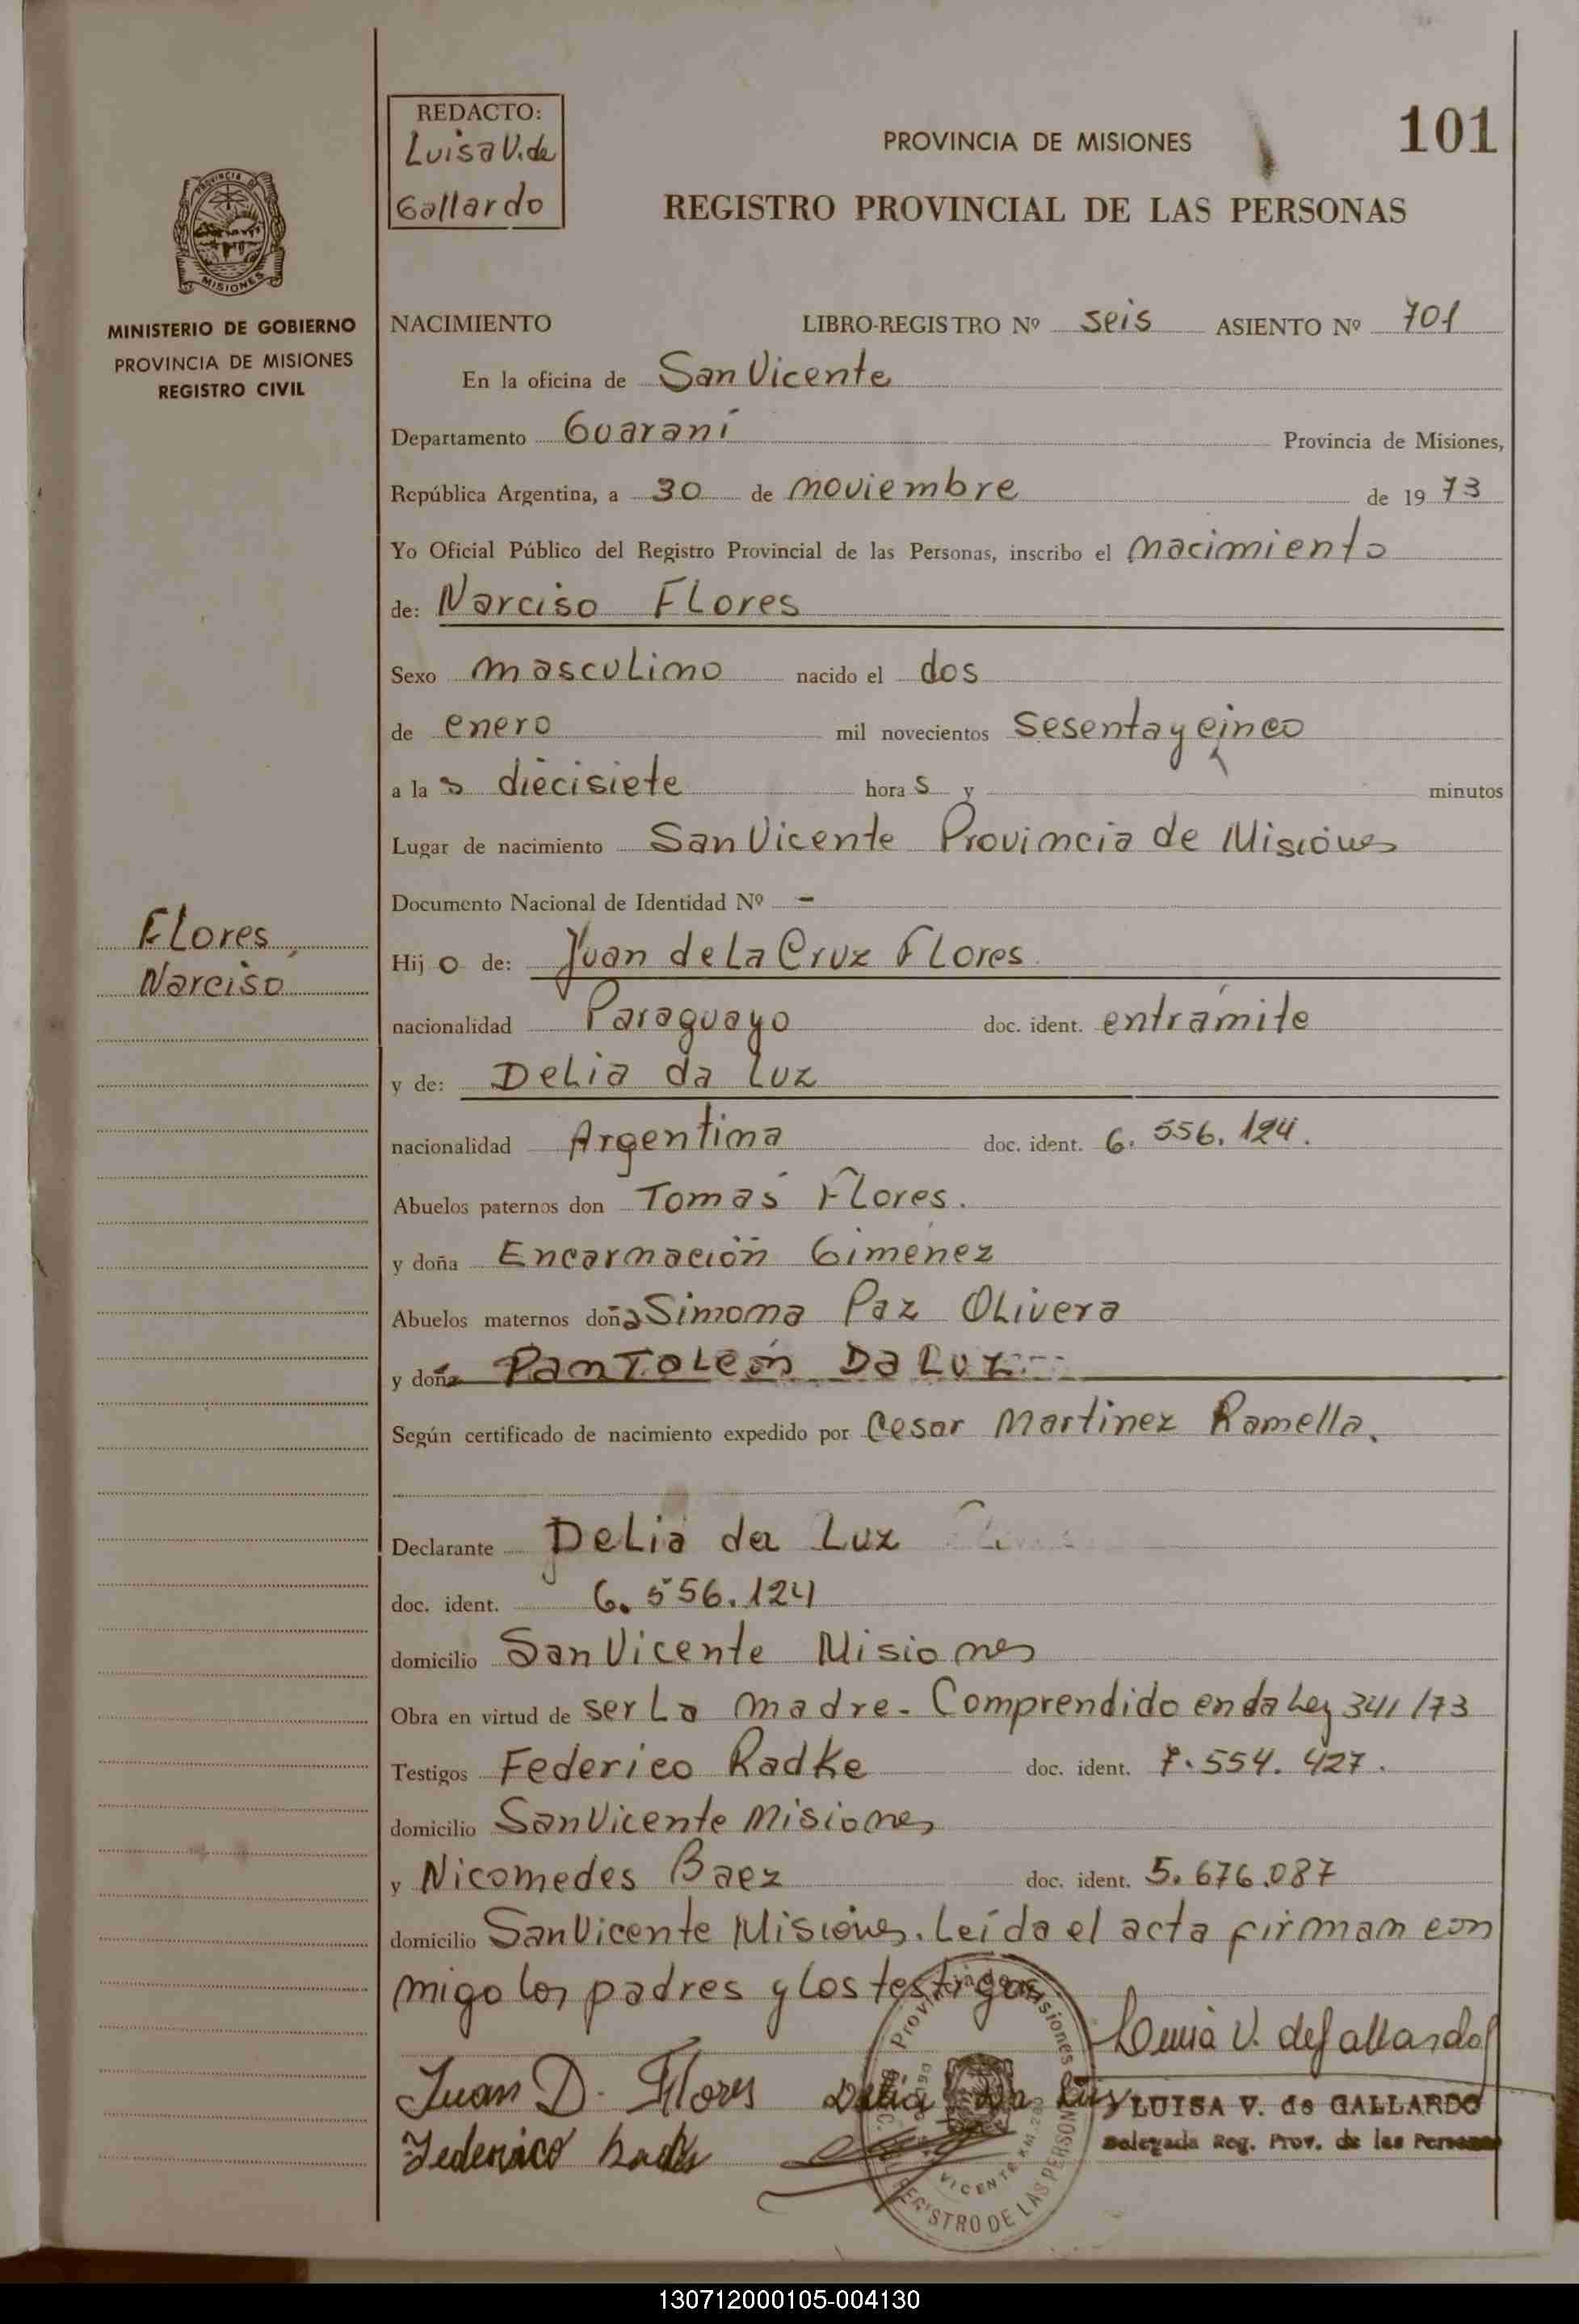 REDACTO:
Luisa V. de
Gallardo
PROVINCIA DE MISIONES
101
REGISTRO PROVINCIAL DE LAS PERSONAS
PROVINCIA DE
MISIONES
MINISTERIO DE GOBIERNO
PROVINCIA DE MISIONES
REGISTRO CIVIL
NACIMIENTO LIBRO-REGISTRO Nº seis ASIENTO Nº 701
En la oficina de San Vicente
Departamento Guaraní Provincia de Misiones,
República Argentina, a 30 de noviembre de 19 73
Yo Oficial Público del Registro Provincial de las Personas, inscribo el nacimiento
de: Narciso Flores
Sexo masculino nacido el dos
de enero mil novecientos sesenta y cinco
a la s diecisiete hora s y minutos
Lugar de nacimiento San Vicente Provincia de Misiones
Documento Nacional de Identidad Nº -
Flores,
Narciso
Hij o de: Juan de La Cruz Flores
nacionalidad Paraguayo doc. ident. en trámite
y de: Delia da Luz
nacionalidad Argentina doc. ident. 6.556.124.
Abuelos paternos don Tomás Flores.
y doña Encarnación Gimenez
Abuelos maternos doña Simona Paz Olivera
y doña Pantoleón Da Luz
Según certificado de nacimiento expedido por Cesar Martinez Ramella.
Declarante Delia da Luz
doc. ident. 6.556.124
domicilio San Vicente Misiones
Obra en virtud de ser La madre - Comprendido en da Ley 341/73
Testigos Federico Radke doc. ident. 7.554.427.
domicilio San Vicente Misiones
y Nicomedes Baez doc. ident. 5.676.087
domicilio San Vicente Misiones. Leída el acta firman con
migo los padres y los testigos
Luisa V. de Gallardo
Juan D. Flores Delia Da Luz
LUISA V. de GALLARDO
Delegada Reg. Prov. de las Personas
Federico Radke
VICENTE KM.
REGISTRO DE LAS PERSON
130712000105-004130